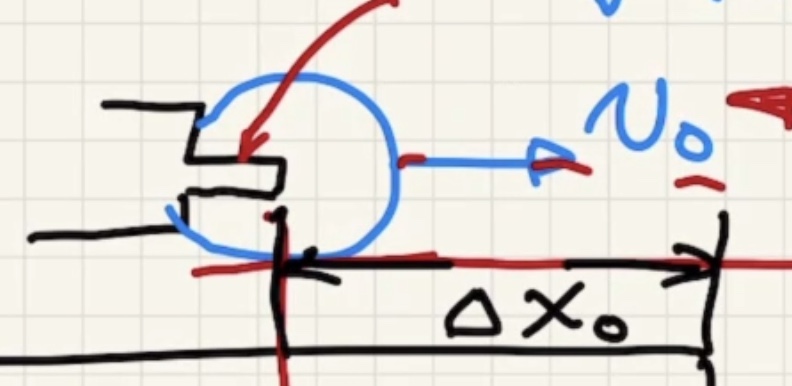 v₀
Δx₀